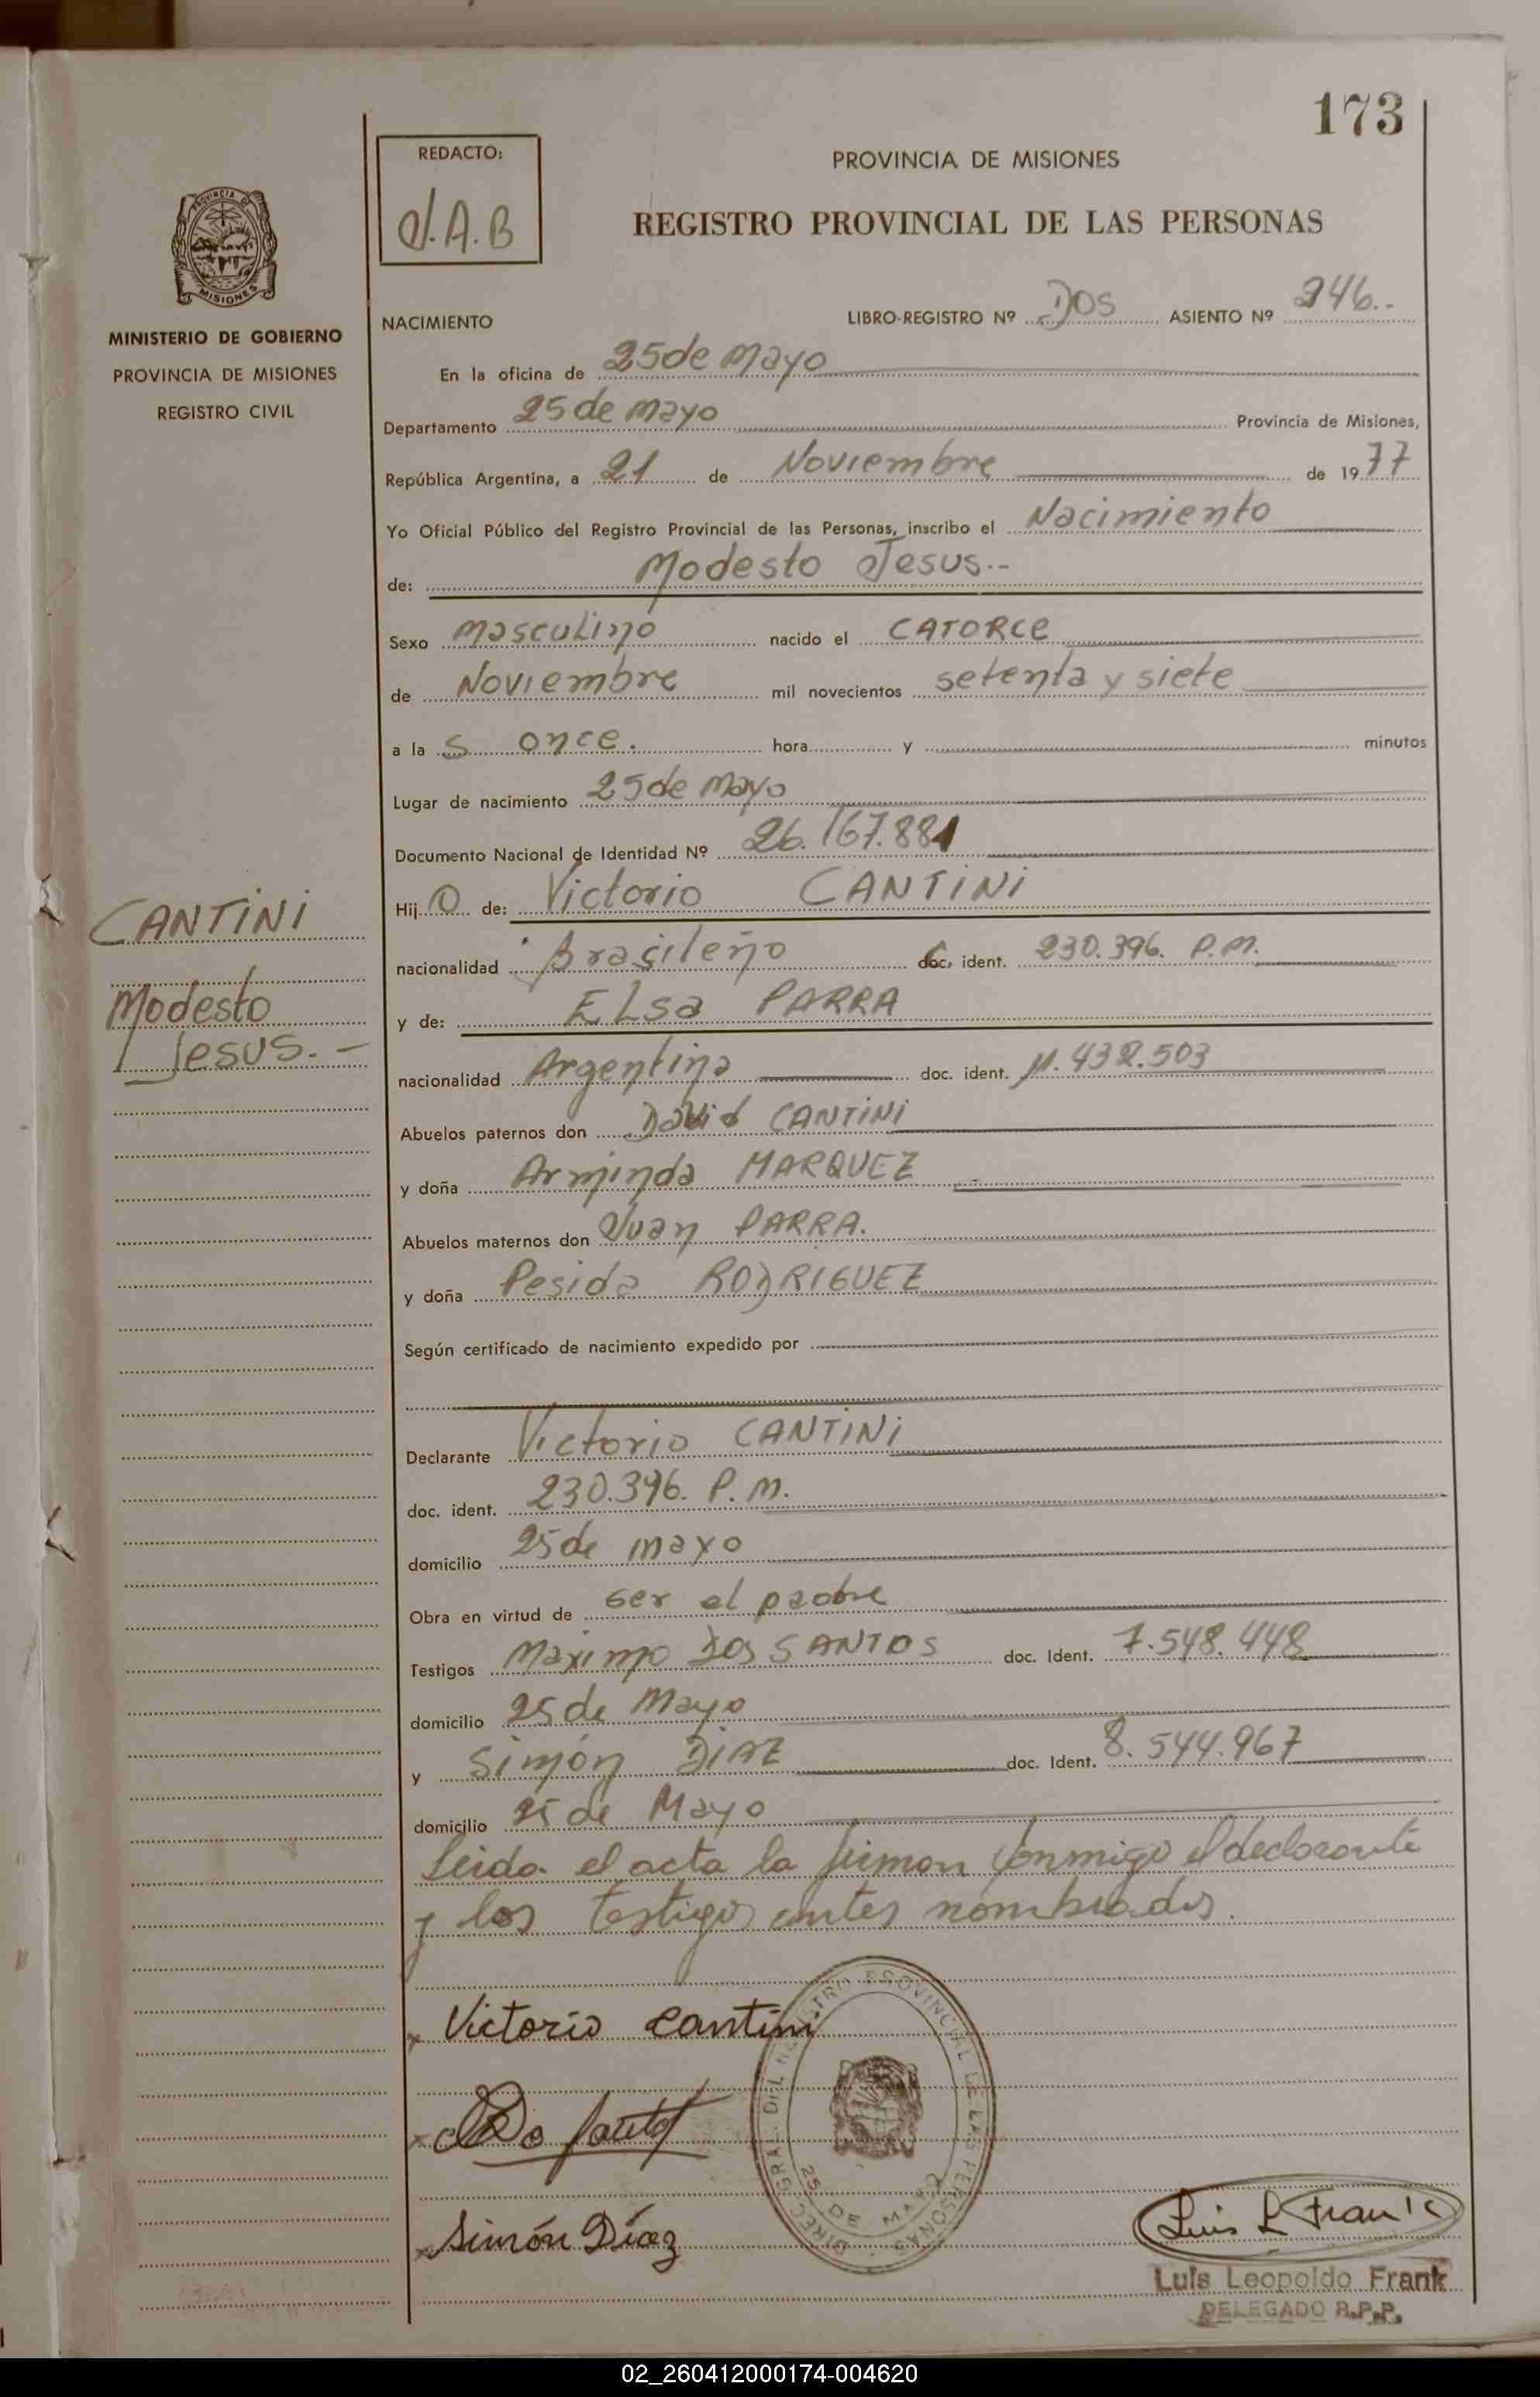 173
REDACTO:
J.A.B
PROVINCIA DE MISIONES
REGISTRO PROVINCIAL DE LAS PERSONAS
PROVINCIA DE
MISIONES
MINISTERIO DE GOBIERNO
PROVINCIA DE MISIONES
REGISTRO CIVIL
NACIMIENTO LIBRO-REGISTRO Nº DOS ASIENTO Nº 346..
En la oficina de 25 de Mayo
Departamento 25 de mayo Provincia de Misiones,
República Argentina, a 21 de Noviembre de 1977
Yo Oficial Público del Registro Provincial de las Personas, inscribo el Nacimiento
de: Modesto Jesus..-
Sexo masculino nacido el CATORCE
de Noviembre mil novecientos setenta y siete
a la s once. hora y minutos
Lugar de nacimiento 25 de Mayo
Documento Nacional de Identidad Nº 26.167.881
Hij O de: Victorio CANTiNi
nacionalidad Brasileño doc. ident. 230.396. P.M.
y de: ELsa PARRA
nacionalidad Argentina doc. ident. 432.503
Abuelos paternos don David CANTiNi
y doña Arminda MARQUEZ
Abuelos maternos don Juan PARRA.
y doña Pesida RODRIGUEZ
Según certificado de nacimiento expedido por
Declarante Victorio CANTiNi
doc. ident. 230.396. P.M.
domicilio 25 de mayo
Obra en virtud de ser el padre
Testigos Maximo DOS SANTOS doc. Ident. 7.548.448
domicilio 25 de Mayo
y Simón DiAZ doc. Ident. 8.544.967
domicilio 25 de Mayo
Leida el acta la firman conmigo el declarante
y los testigos antes nombrados.
CANTiNi
Modesto
Jesus.-
x Victorio Cantini
x Do Santos
x Simón Díaz
DIREC. GRAL. DEL REGISTRO PROVINCIAL DE LAS PERSONAS
25 DE MAYO
Luis L Frank
Luis Leopoldo Frank
DELEGADO R.P.P.
02_260412000174-004620